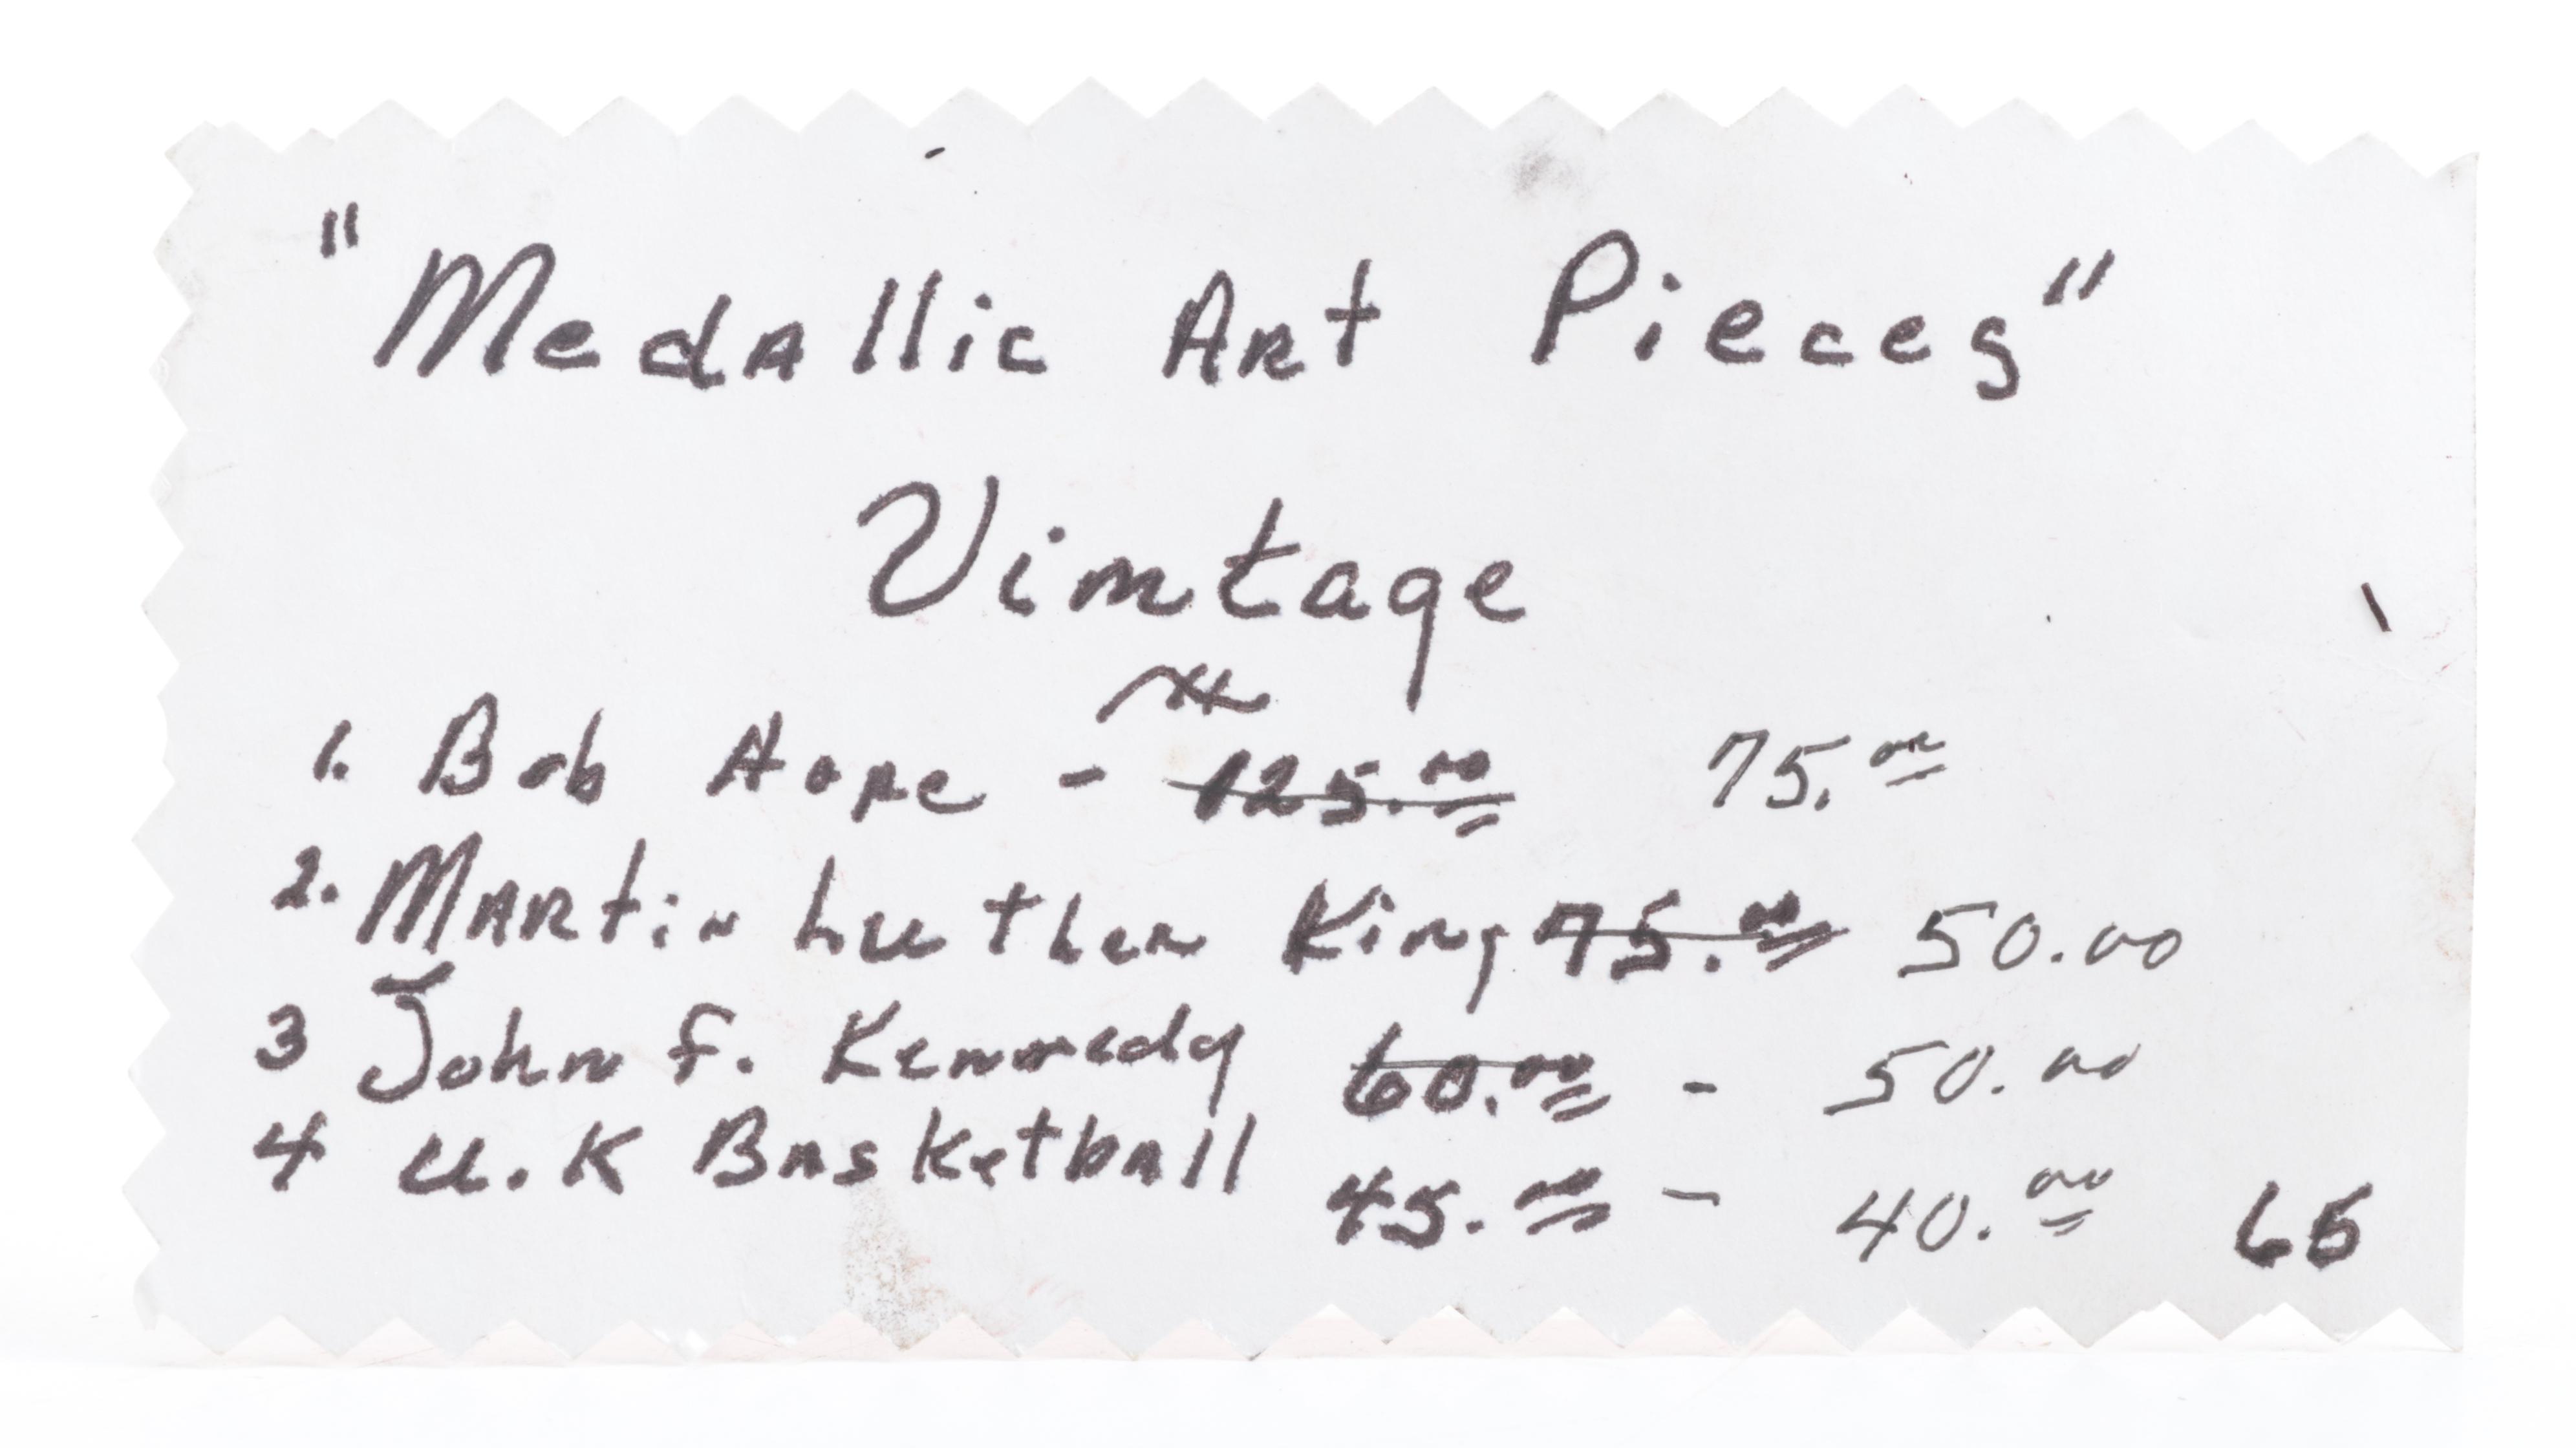 "Medallic Art Pieces"
Vintage
1. Bob Hope - 125.00 75.00
2. Martin Luther King 75.00 50.00
3 John F. Kennedy 60.00 - 50.00
4 U.K Basketball 45.00 - 40.00 65